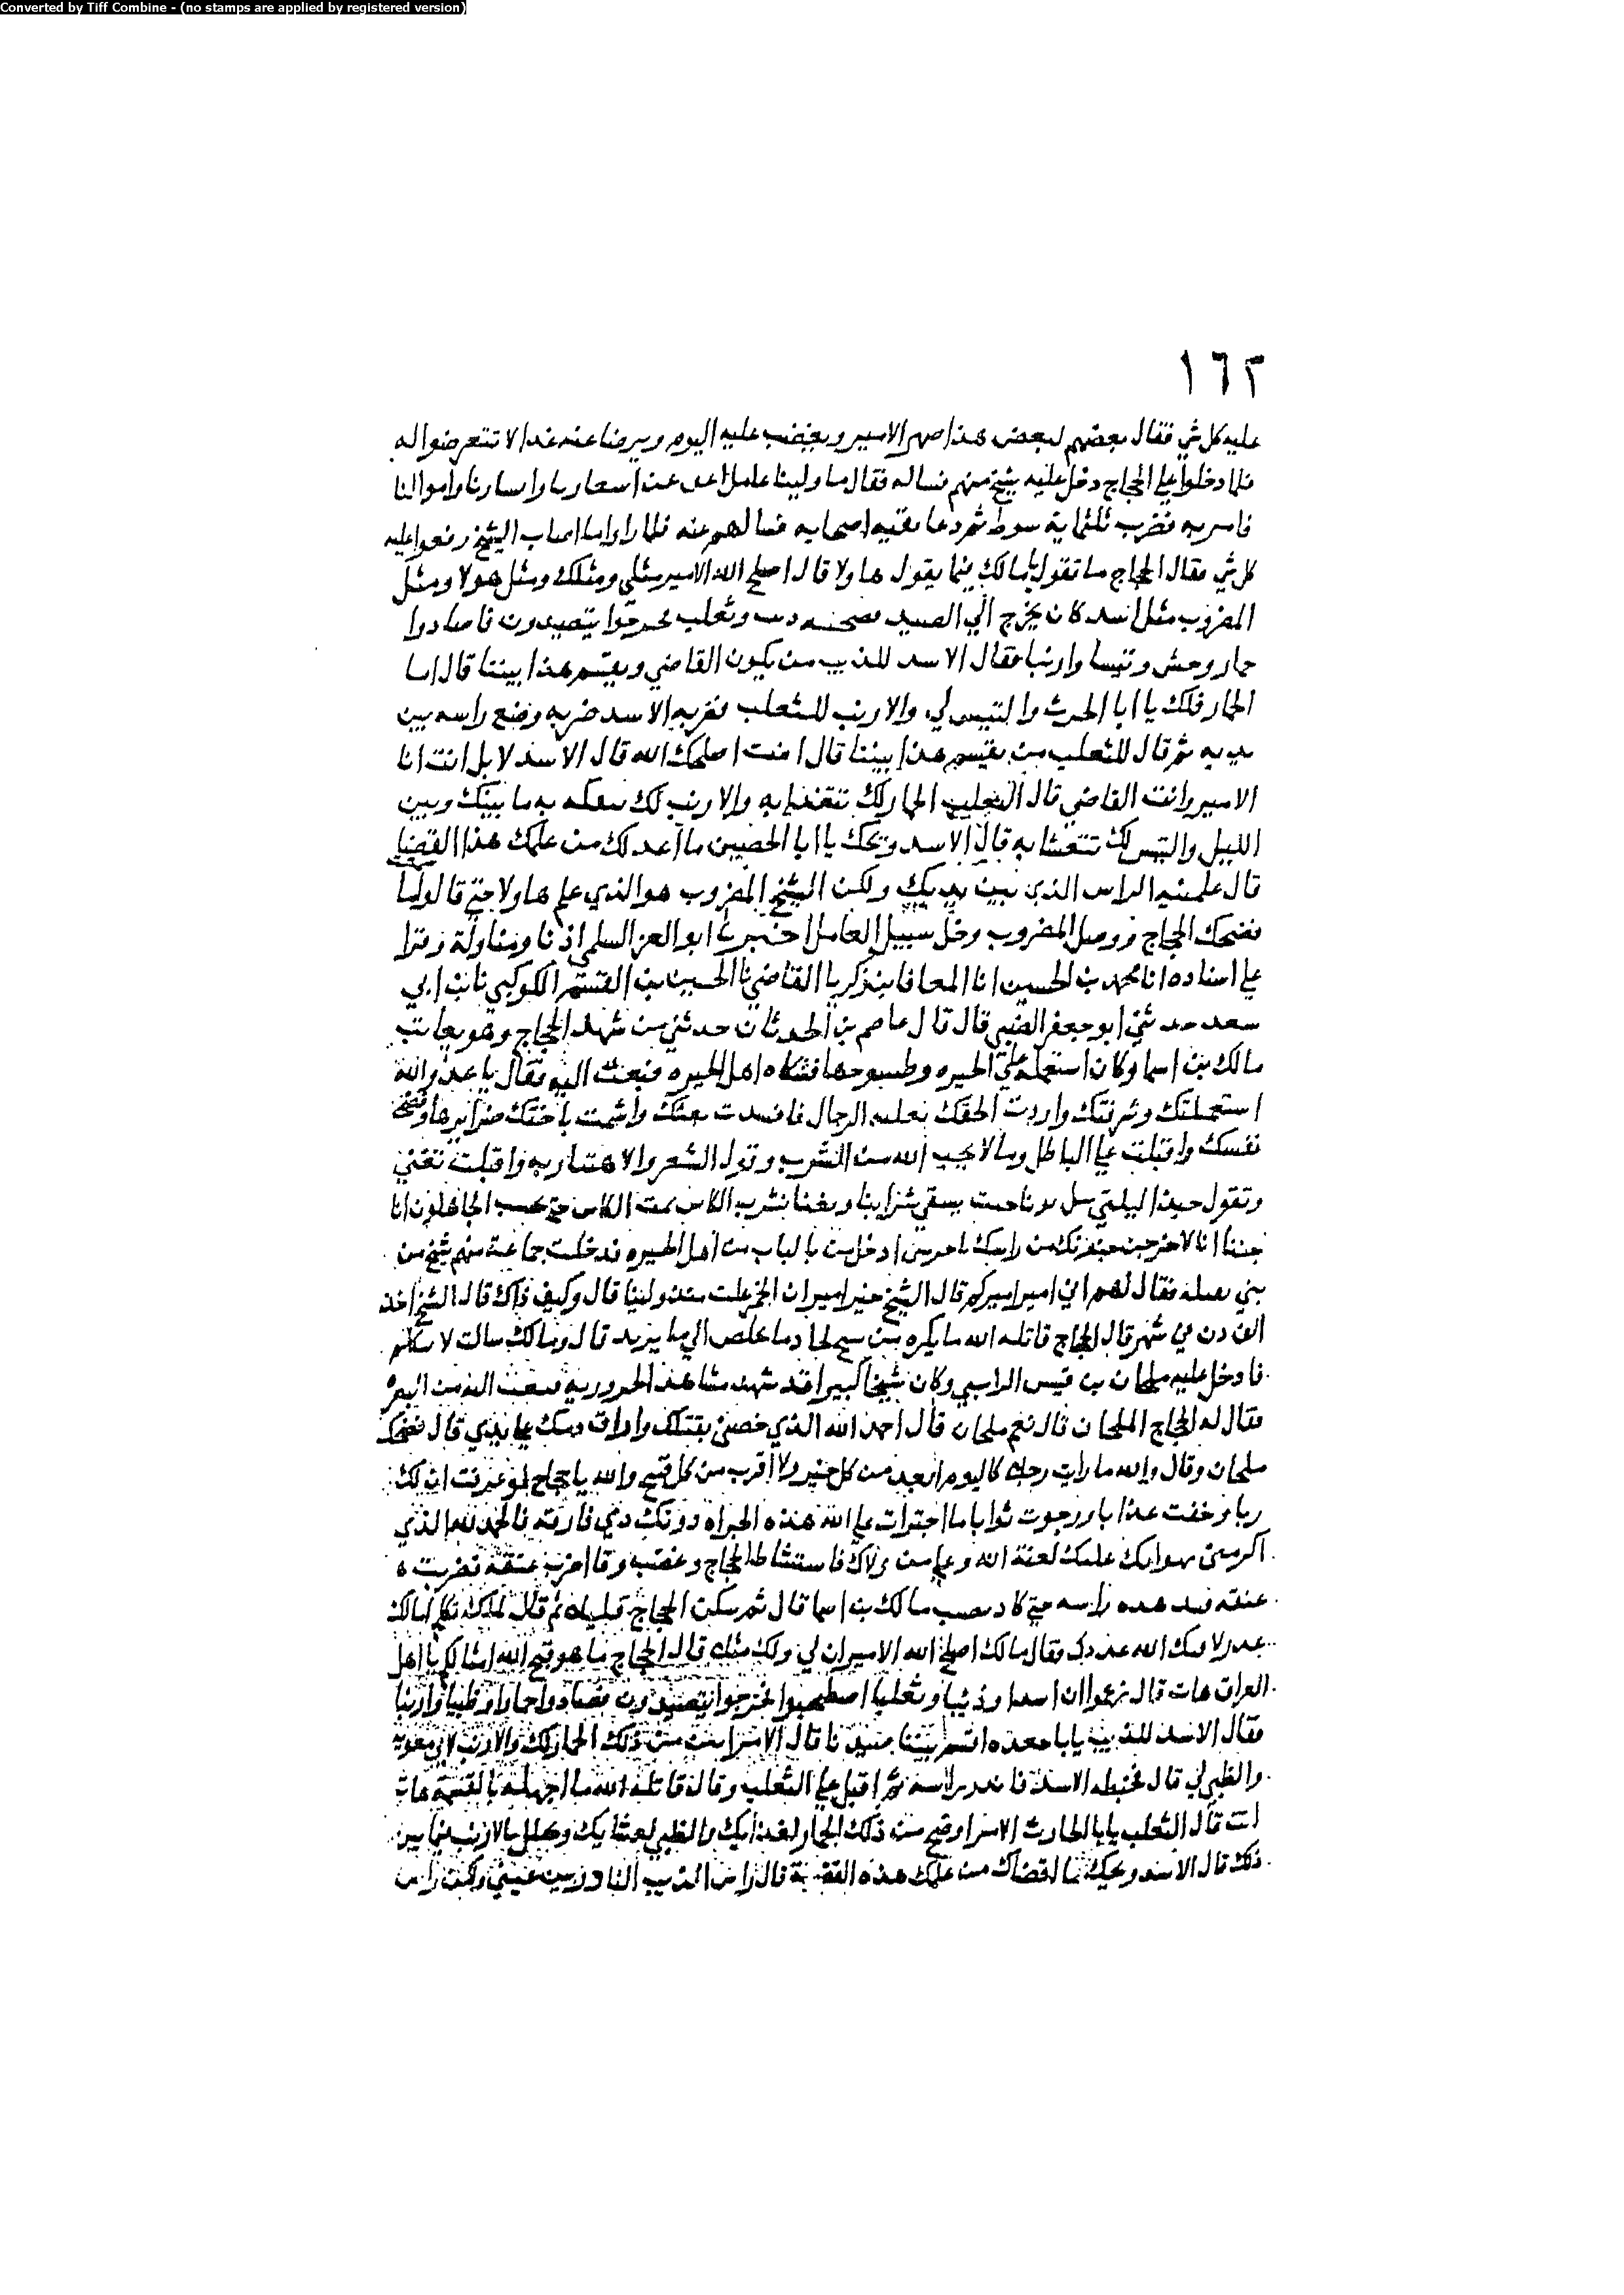 Converted by Tiff Combine - (no stamps are applied by registered version)
١٦٢
عليه كل شي فقال بعضهم لبعض هذا صهر الامير ويغضب عليه اليوم ويرضا عنه غدا لا تتعرضوا له
فلما دخلوا علي الحجاج دخل عليه شيخ منهم فساله فقال ما ولينا عامل اعف عن اسعارنا وابسارنا واموالنا
فامر به فضرب ثلثماية سوط ثم دعا بقية اصحابه فسالهم عنه فلما راوا ما اصاب الشيخ رفعوا عليه
كل شي فقال الحجاج ما تقول يا مالك فيما يقول هاولا قال اصلح الله الامير مثلي ومثلك ومثل هولا ومثل
المضروب مثل اسد كان يخرج الي الصيد فصحبه ذيب وثعلب فخرجوا يتصيدون فاصادوا
حمار وحش وتيسا وارنبا فقال الاسد للذيب من يكون القاضي ويقسم هذا بيننا قال اما
الحمار فلك يا ابا الحرث والتيس لي والارنب للثعلب فضربه الاسد ضربه وضع راسه بين
يديه ثم قال للثعلب من يقسم هذا بيننا قال انت اصلحك الله قال الاسد لا بل انت انا
الامير وانت القاضي قال الثعلب الحمار لك تتغذا به والارنب لك تتفكه به ما بينك وبين
الليل والتيس لك تتعشا به قال الاسد ويحك يا ابا الحصين ما اعدلك من علمك هذا القضا
قال علمنيه الراس الذي بين يديك ولكن الشيخ المضروب هو الذي علم هاولا حتي قالوا ما
فضحك الحجاج ووصل المضروب وخلي سبيل العامل اخبرنا ابو العز السلمي اذنا ومناولة وقرا
علي اسناده انا محمد بن الحسين انا المعافا بن ذكريا القاضي نا الحسين بن القسم الكوكبي نا بن ابي
سعد حدثني ابو جعفر الضبي قال قال عاصم بن الحدثان حدثني من شهد الحجاج وهو يعاتب
مالك بن اسما وكان استعمله علي الحيره وطسوجها فشكاه اهل الحيره فبعث اليه فقال يا عدو الله
استعملتك وشرفتك واردت الحقك بعليه الرجال فافسدت واشمت باختك ضرايرها وفضحت
نفسك واقبلت علي الباطل وما لا يحب الله من الشرب وقول الشعر والاهتار به واقبلت تغني
وتقول حبذا ليلتي بتل بونا حيث يسقي شرابنا ويغنا بشرب الكاس ثمت الكاس حتي يحسب الجاهلون انا
جننا انا لاخرجن من راسك يا حرسي ادخل من بالباب من اهل الحيره فدخلت جماعة منهم شيخ من
بني بقيله فقال لهم اي امير اميركم قال الشيخ خير امير ان الخمر غلت منذ ولينا قال وكيف ذاك قال الشيخ اخذ
الف دن في شهر قال الحجاج قاتله الله ما يكره من الي ما يريد قال ومالك ساكت لا يتكلم
فادخل عليه ملحان بن قيس الراسبي وكان شيخا كبيرا قد شهد مشاهد الحرورية فبعث اليه من البصره
فقال له الحجاج املحان قال نعم ملحان قال احمد الله الذي خصني بقتلك واراق دمك علي يدي قال فضحك
ملحان وقال والله ما رايت رجلا كاليوم ابعد من كل خير ولا اقرب من كل قبيح والله يا حجاج لو عرفت ان لك
ربا وخفت عذابا ورجوت ثوابا ما اجترات علي الله هذه الجراه دونك دمي فارقه فالحمد لله الذي
اكرمني بهوانك عليك لعنة الله وعلي من ولاك فاستشاط الحجاج وغضب وقال اضرب عنقه فضربت
عنقه راسه حتي كاد يصيب مالك بن اسما قال ثم سكن الحجاج قليلا ثم قال لمالك تكلم مالك
فقال مالك اصلح الله الامير ان لي ولك مثلا قال الحجاج ما هو قبح الله امثالكم يا اهل
العراق هات قال زعموا ان اسدا وذئبا وثعلبا اصطحبوا فخرجوا يتصيدون فصادوا حمارا وظبيا وارنبا
فقال الاسد للذيب يابا جعده اقسم بيننا صيدنا قال الامر ابين من ذلك الحمار لك والارنب لابي معويه
والظبي لي قال فخبطه الاسد فاندر راسه ثم اقبل علي الثعلب وقال قاتله الله ما اجهله بالقسمة هات
انت قال الثعلب يابا الحارث الامر اوضح من ذلك الحمار لغدايك والظبي لعشايك وتخلل بالارنب فيما بين
ذلك قال الاسد ويحك ما اقضاك من علمك هذه القضية قال راس الذيب النادر بين عيني ولكن راس